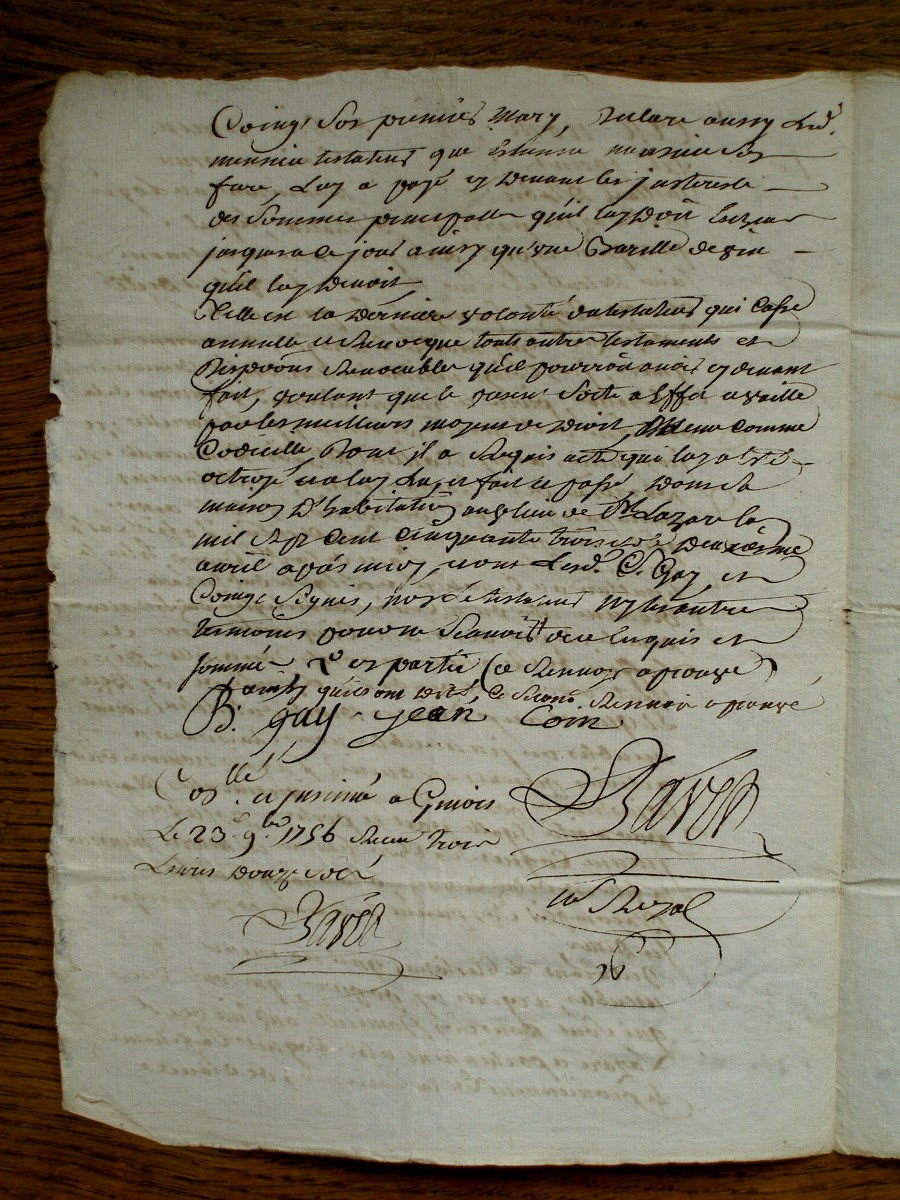 Coing son premier mary, declare aussy led.
mersier testateur que Estienne mersier son
frere, luy a payé cy devant les interests
des sommes principalles qu'il luy doit
jusques a ce jour ainsy qu'une Barille de vin
qu'il luy devoit
Telle est la derniere volonté du testateur qui casse
annulle et revocque touts autres testaments et
revocables qu'il pourroit avoir cy devant
fait, voulant que le present sorte a effet et vaille
par les meilleurs moyens de droit, comme
Codicille, Dont il a requis acte que luy a été
octroyé et a luy lu, et fait et passé dans la
maison d'habitation au lieu de St Lazare la
mil sept cent cinquante trois et le deuxieme
avril apres midy, nous lesd. Srs Gay, et
Coing signés, non le testateur ny les autres
temoins pour ne sçavoir de ce enquis et
sommés en partie (ce renvoy aprouvé
ainsy qu'ils ont dit, ce second renvoy aprouvé
B. gay jean Coin
Con.llé et insinué a
Le 23e 9bre 1756 Receu trois
Livres douze sols
Savér
Savér
Noe Royal